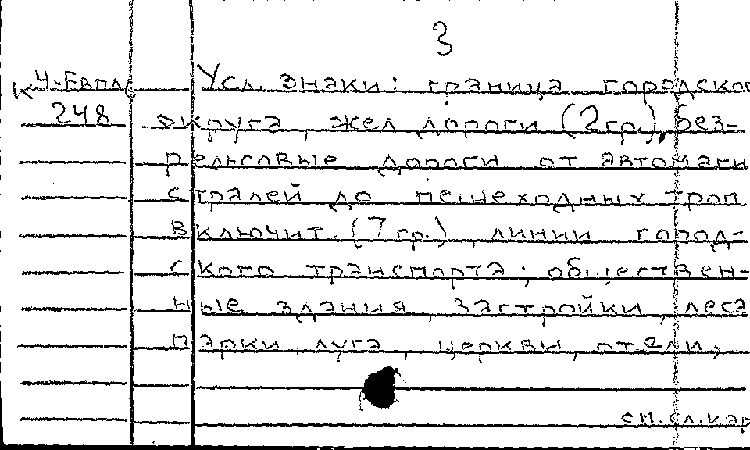 3
К Ч-Евпл
248
Усл. знаки: граница городског
округа, жел дороги (2гр.), без-
рельсовые дороги от автомаги
стралей до пешеходных троп
включит. (7 гр.), линии город-
ского транспорта; обществен-
ные здания, застройки, леса
парки, луга, церкви, отели,
см. сл. кар